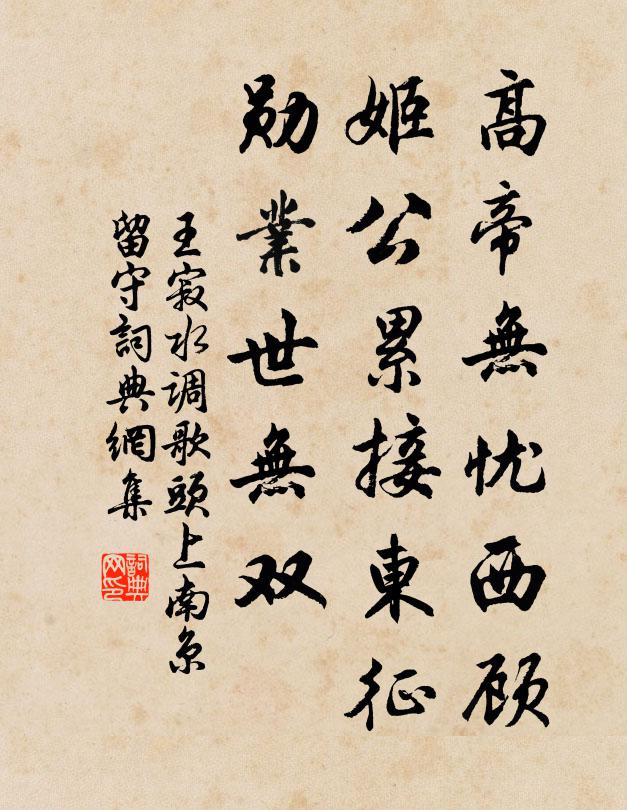 高帝無忧西顾
姬公累接東征
勋業世無双
王寂水调歌頭上南京
留守詞典網集
詞典网印